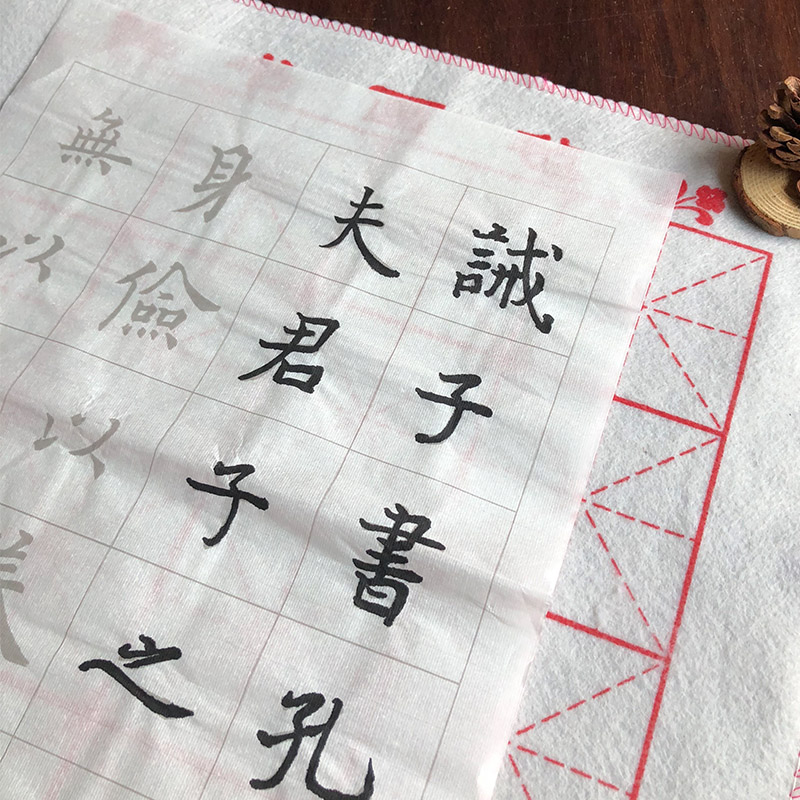 誡子書孔
夫君子之
身儉以
無以養